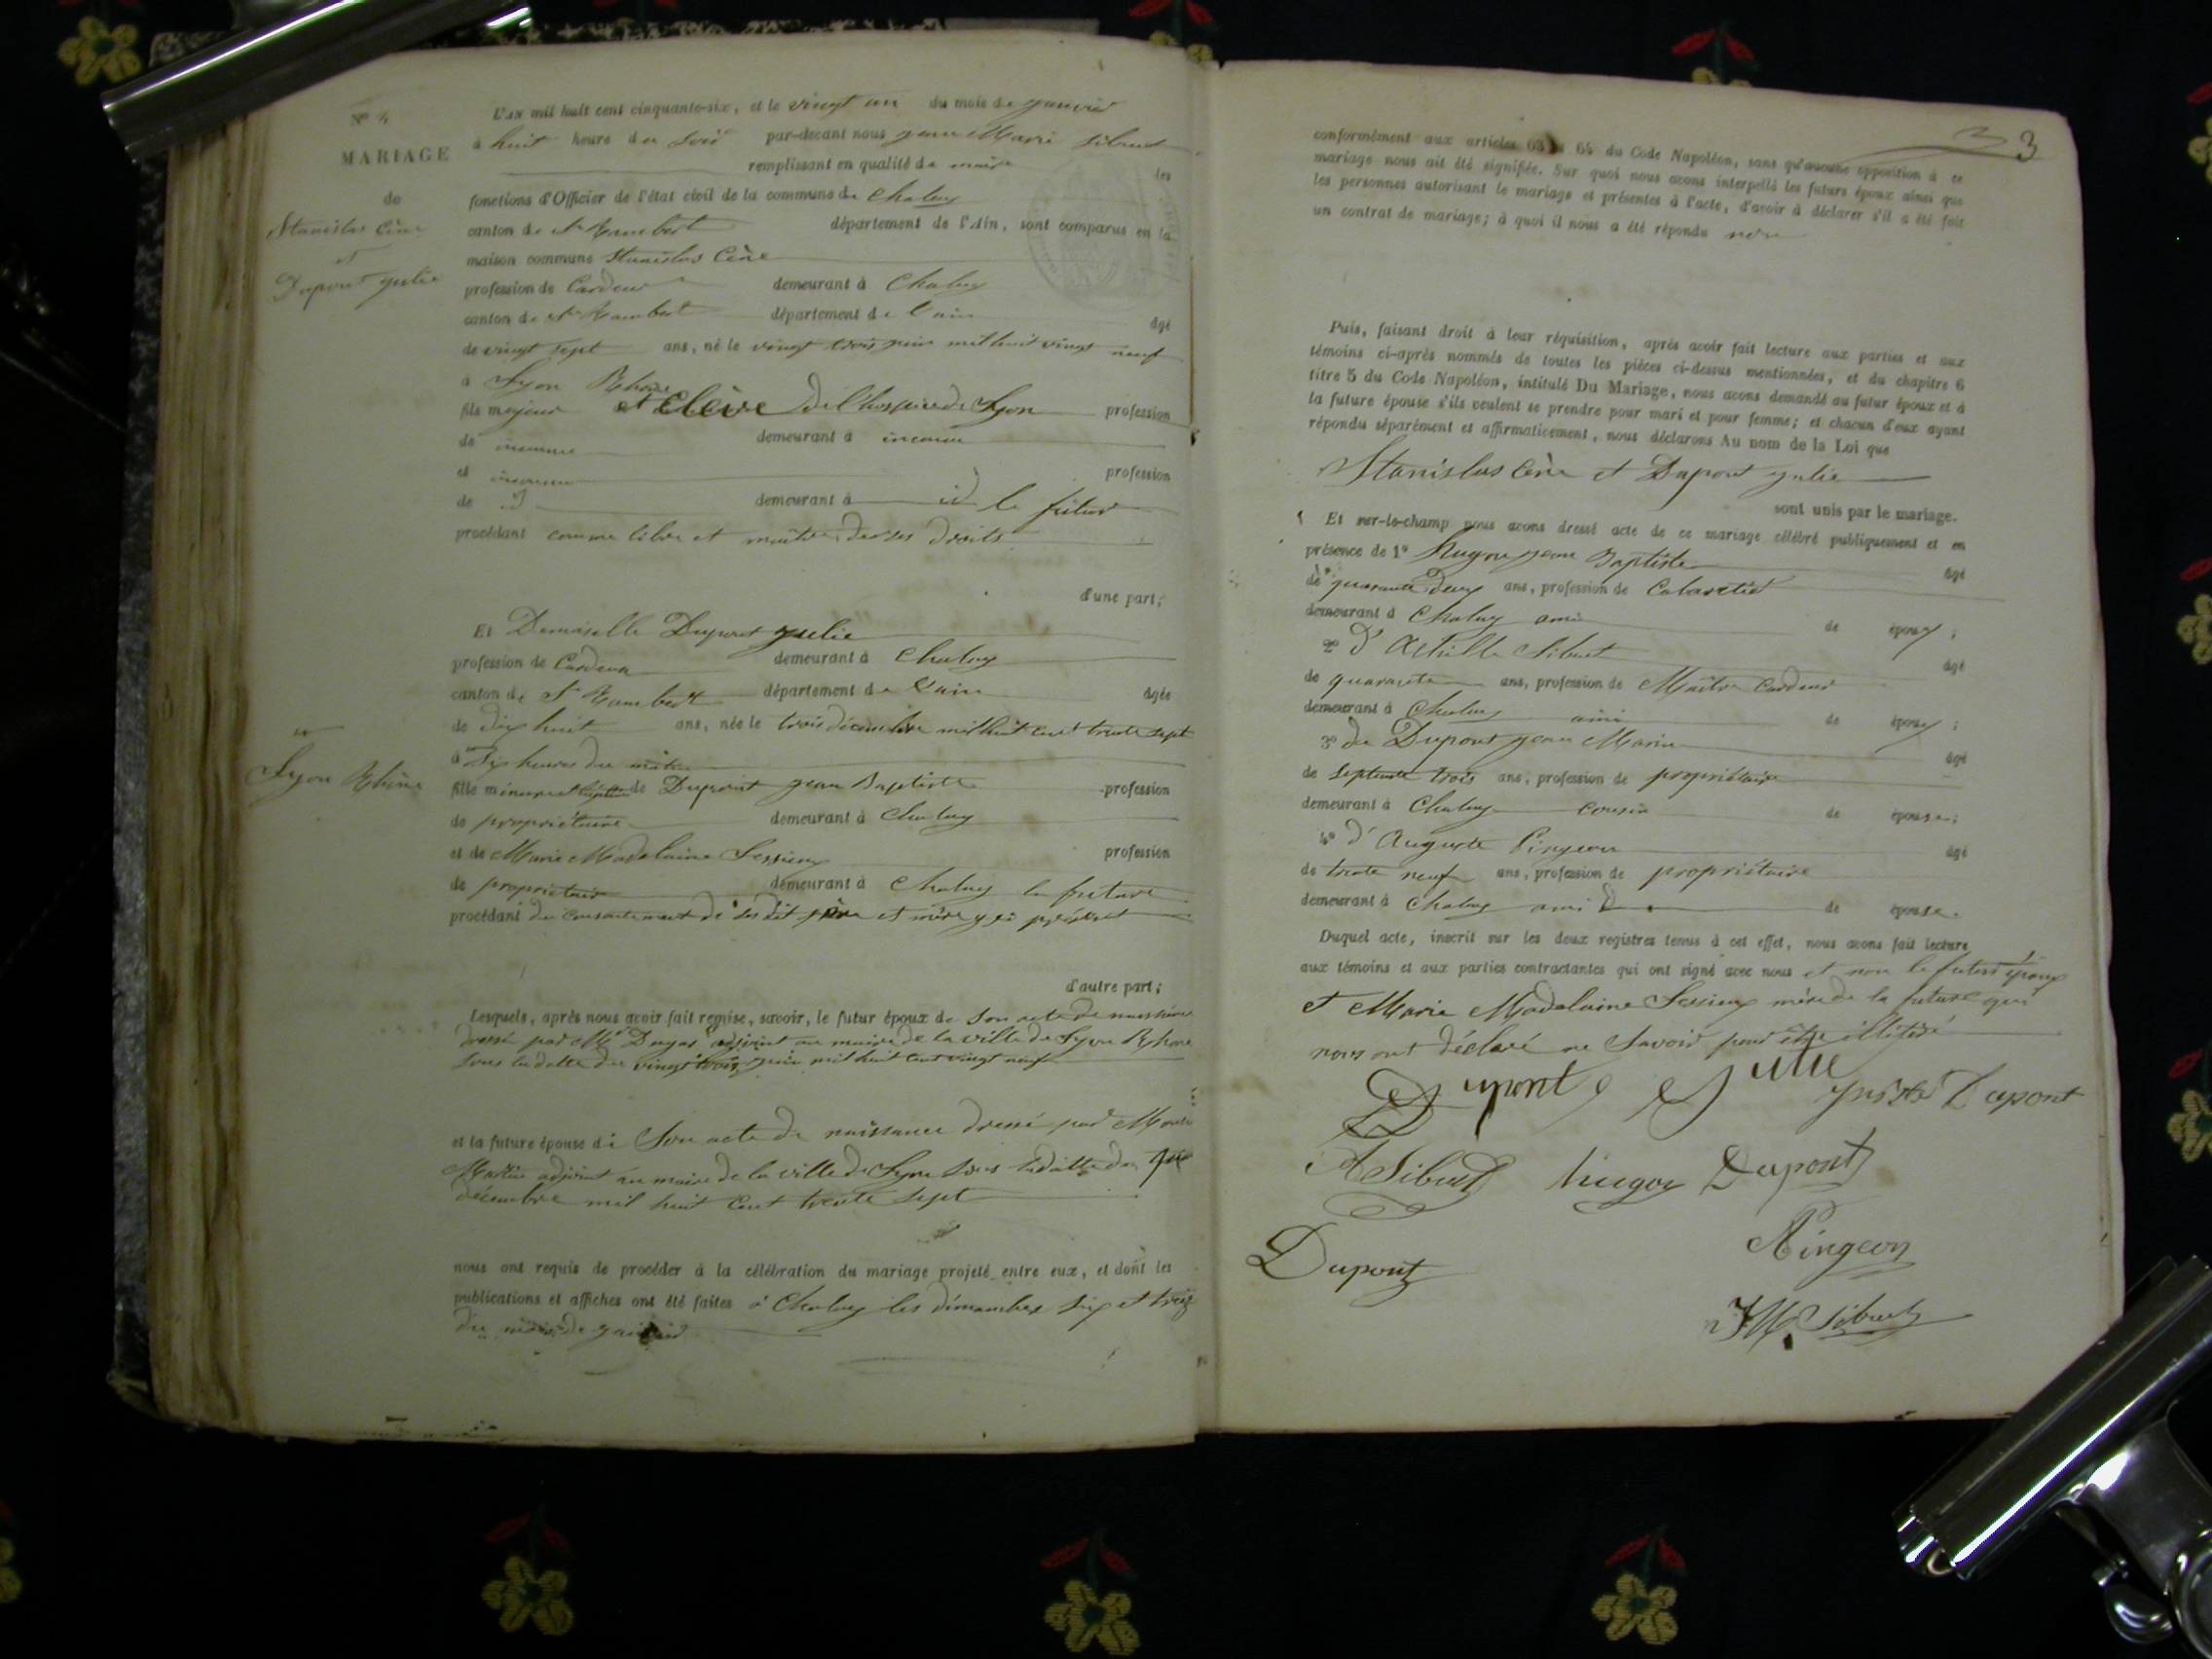 N° 4
MARIAGE
de
Stanislas Cène
et
Dupont Julie
L'an mil huit cent cinquante-six, et le vingt un du mois de janvier
à huit heure du soir par-devant nous jean Marie Sibuet
remplissant en qualité de maire les
fonctions d'Officier de l'état civil de la commune de Chaley
canton de St Rambert département de l'Ain, sont comparus en la
maison commune Stanislas Cène
profession de Cardeur demeurant à Chaley
canton de St Rambert département de l'ain âgé
de vingt sept ans, né le vingt trois juin mil huit vingt neuf
à Lyon Rhône
fils majeur et Elève de l'hospice de Lyon profession
de inconnue demeurant à inconnu
et inconnue profession
de id demeurant à id le futur
procédant comme libre et maître de ses droits
d'une part;
Et Demoiselle Dupont Julie
profession de Cardeur demeurant à Chaley
canton de St Rambert département de l'ain âgée
de dix huit ans, née le trois décembre mil huit cent trente sept
à Six heures du matin
à
Lyon Rhône
fille mineure et légitime de Dupont jean Baptiste profession
de propriétaire demeurant à Chaley
et de Marie Madelaine Lessieux profession
de propriétaire demeurant à Chaley la future
procédant du consentement de ses dit père et mère ici présent
d'autre part;
Lesquels, après nous avoir fait remise, savoir, le futur époux de son acte de naissance
dressé par Mr Dugas adjoint au maire de la ville de Lyon Rhône
sous la datte du vingt trois juin mil huit cent vingt neuf
et la future épouse de Son acte de naissance dressé par
Martin adjoint au maire de la ville de Lyon sous la datte du
décembre mil huit cent trente sept
nous ont requis de procéder à la célébration du mariage projeté entre eux, et dont les
publications et affiches ont été faites à Chaley les dimanches six et treize
du mois de janvier
3
conformément aux articles 63 64 du Code Napoléon, sans qu'aucune opposition à ce
mariage nous ait été signifiée. Sur quoi nous avons interpellé les futurs époux ainsi que
les personnes autorisant le mariage et présentes à l'acte, d'avoir à déclarer s'il a été fait
un contrat de mariage; à quoi il nous a été répondu non
Puis, faisant droit à leur réquisition, après avoir fait lecture aux parties et aux
témoins ci-après nommés de toutes les pièces ci-dessus mentionnées, et du chapitre 6
titre 5 du Code Napoléon, intitulé Du Mariage, nous avons demandé au futur époux et à
la future épouse s'ils veulent se prendre pour mari et pour femme; et chacun d'eux ayant
répondu séparément et affirmativement, nous déclarons Au nom de la Loi que
Stanislas Cène et Dupont Julie
sont unis par le mariage.
Et sur-le-champ nous avons dressé acte de ce mariage célébré publiquement et en
présence de 1° Hugon jean Baptiste âgé
de quarante deux ans, profession de Cabaretier
demeurant à Chaley ami de époux;
2° d'Achille Sibuet âgé
de quarante ans, profession de Maître Cardeur
demeurant à Chaley ami de époux;
3° de Dupont jean Marie âgé
de septente trois ans, profession de propriétaire
demeurant à Chaley cousin de épouse;
4° d'Auguste Pingeon âgé
de trente neuf ans, profession de propriétaire
demeurant à Chaley ami de épouse.
Duquel acte, inscrit sur les deux registres tenus à cet effet, nous avons fait lecture
aux témoins et aux parties contractantes qui ont signé avec nous et non le futur époux
et Marie Madelaine Lessieux mère de la future qui
nous ont déclaré ne Savoir pour être illitéré
Dupont Julie Dupont
A Sibuet Hugon Dupont
Pingeon
Dupont
JM Sibuet